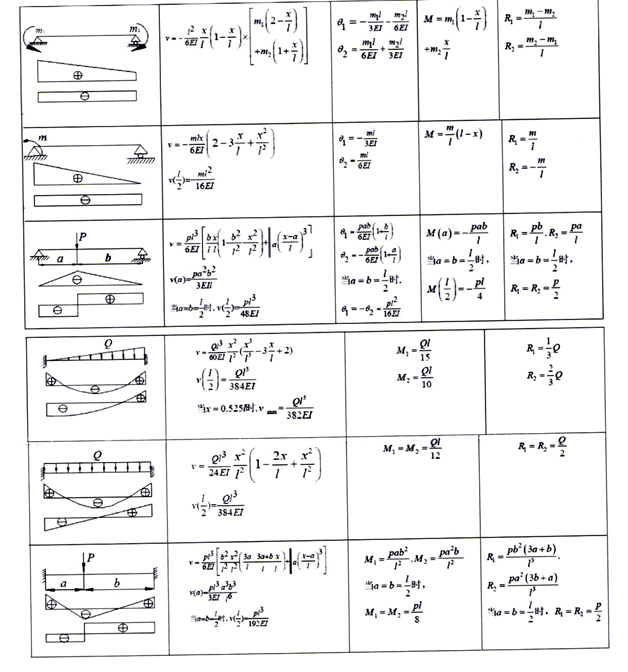 m₁ m₂
v=-\frac{l²}{6EI}\frac{x}{l}(1-\frac{x}{l})×[m₁(2-\frac{x}{l})+m₂(1+\frac{x}{l})]
θ₁=-\frac{m₁l}{3EI}-\frac{m₂l}{6EI}
θ₂=\frac{m₁l}{6EI}+\frac{m₂l}{3EI}
M=m₁(1-\frac{x}{l})
+m₂\frac{x}{l}
R₁=\frac{m₁-m₂}{l}
R₂=\frac{m₂-m₁}{l}
⊕
⊖
m
v=-\frac{mlx}{6EI}(2-3\frac{x}{l}+\frac{x²}{l²})
v(\frac{l}{2})=\frac{ml²}{16EI}
θ₁=-\frac{ml}{3EI}
θ₂=\frac{ml}{6EI}
M=\frac{m}{l}(l-x)
R₁=\frac{m}{l}
R₂=-\frac{m}{l}
⊕
⊖
P
a b
v=\frac{pl³}{6EI}[\frac{bx}{l l}(1-\frac{b²}{l²}-\frac{x²}{l²})+‖a(\frac{x-a}{l})³]
v(a)=\frac{pa²b²}{3EIl}
当a=b=\frac{l}{2}时, v(\frac{l}{2})=\frac{pl³}{48EI}
θ₁=\frac{pab}{6EI}(1+\frac{b}{l})
θ₂=-\frac{pab}{6EI}(1+\frac{a}{l})
当a=b=\frac{l}{2}时,
θ₁=-θ₂=\frac{pl²}{16EI}
M(a)=-\frac{pab}{l}
当a=b=\frac{l}{2}时,
M(\frac{l}{2})=-\frac{pl}{4}
R₁=\frac{pb}{l}, R₂=\frac{pa}{l}
当a=b=\frac{l}{2}时,
R₁=R₂=\frac{p}{2}
⊖
⊖ ⊕
Q
v=\frac{Ql³}{60EI}\frac{x²}{l²}(\frac{x³}{l³}-3\frac{x}{l}+2)
v(\frac{l}{2})=\frac{Ql³}{384EI}
当x=0.525l时, v =\frac{Ql³}{382EI}
M₁=\frac{Ql}{15}
M₂=\frac{Ql}{10}
R₁=\frac{1}{3}Q
R₂=\frac{2}{3}Q
⊕ ⊖ ⊕
⊖ ⊕
Q
v=\frac{Ql³}{24EI}\frac{x²}{l²}(1-\frac{2x}{l}+\frac{x²}{l²})
v(\frac{l}{2})=\frac{Ql³}{384EI}
M₁=M₂=\frac{Ql}{12}
R₁=R₂=\frac{Q}{2}
⊕ ⊖ ⊕
⊖ ⊕
P
a b
v=\frac{pl³}{6EI}[\frac{b²}{l²}\frac{x²}{l²}(\frac{3a}{l}-\frac{3a+b}{l}\frac{x}{l})+‖a(\frac{x-a}{l})³]
v(a)=\frac{pl³}{3EI}\frac{a³b³}{l⁶}
当a=b=\frac{l}{2}时, v(\frac{l}{2})=\frac{pl³}{192EI}
M₁=\frac{pab²}{l²}, M₂=\frac{pa²b}{l²}
当a=b=\frac{l}{2}时,
M₁=M₂=\frac{pl}{8}
R₁=\frac{pb²(3a+b)}{l³},
R₂=\frac{pa²(3b+a)}{l³}
当a=b=\frac{l}{2}时, R₁=R₂=\frac{p}{2}
⊕ ⊖ ⊕
⊖ ⊕